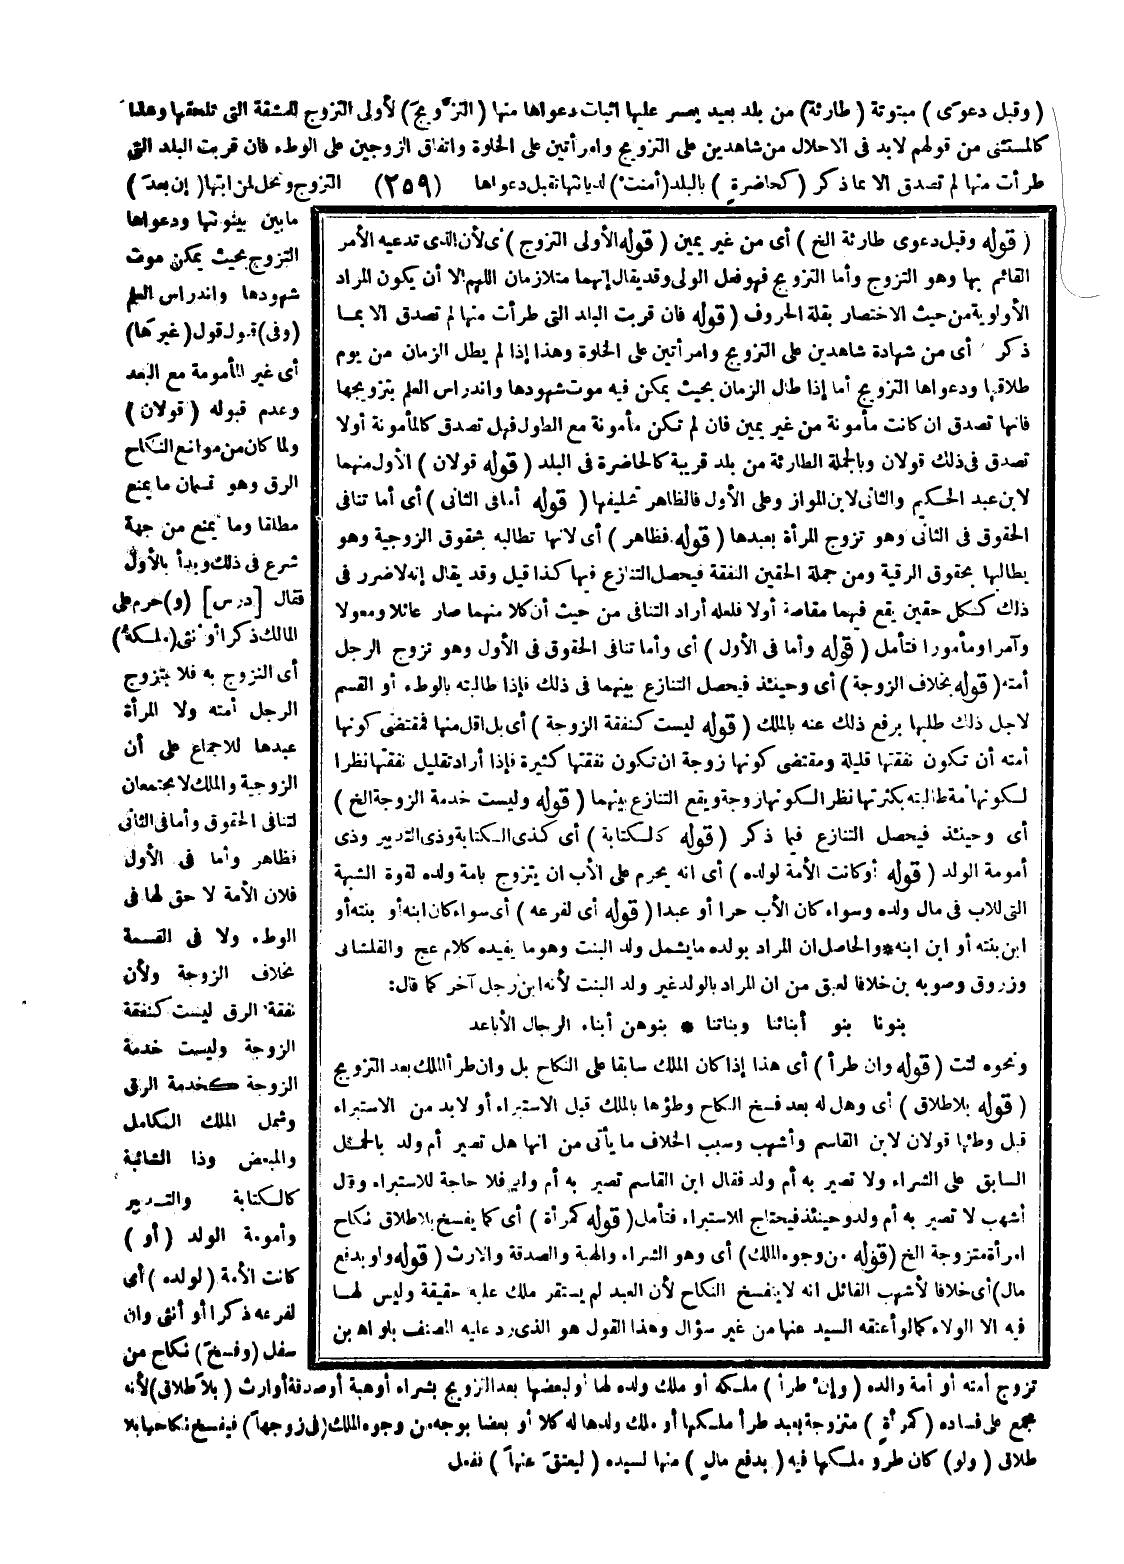 ( وقبل دعوى ) مبتوتة ( طارئة) من بلد بعيد يعسر عليها اثبات دعواها منها ( التزويج) لأولى التزوج للمشقة التى تلحقها وهذا
كالمستثنى من قولهم لابد فى الاحلال من شاهدين على التزويج وامرأتين على الخلوة واتفاق الزوجين على الوطء فان قربت البلد التى
طرأت منها لم تصدق الا بما ذكر ( كحاضرة ) بالبلد (أمنت) لديانتها تقبل دعواها (٢٥٩) التزوج وتحل لمن ابتها ( إن بعد )
مابين بينونتها ودعواها
التزوج بحيث يمكن موت
شهودها واندراس العلم
(وفى) قبول قول (غيرها)
أى غير المأمونة مع البعد
وعدم قبوله ( قولان )
ولما كان من موانع النكاح
الرق وهو قسمان ما يمنع
مطلقا وما يمنع من جهة
شرع فى ذلك وبدأ بالأول
فقال [درس] (و) حرم على
المالك ذكرا أو أنثى (ملكه)
أى التزوج به فلا يتزوج
الرجل أمته ولا المرأة
عبدها للاجماع على أن
الزوجية والملك لا يجتمعان
لتنافى الحقوق وأما فى الثانى
فظاهر وأما فى الأول
فلان الأمة لا حق لها فى
الوطء ولا فى القسمة
بخلاف الزوجة ولأن
نفقة الرق ليست كنفقة
الزوجة وليست خدمة
الزوجة كخدمة الرق
وشمل الملك الكامل
والمبعض وذا الشائبة
كالكتابة والتدبير
وأمومة الولد ( أو )
كانت الأمة ( لولده ) أى
لفرعه ذكرا أو أنثى وان
سفل (وفسخ) نكاح من
( قوله وقبل دعوى طارئة الخ ) أى من غير يمين ( قوله الأولى التزوج ) أى لأن الذى تدعيه الأمر
القائم بها وهو التزوج وأما التزويج فهو فعل الولى وقد يقال إنهما متلازمان اللهم إلا أن يكون المراد
الأولوية من حيث الاختصار بقلة الحروف ( قوله فان قربت البلد التى طرأت منها لم تصدق الا بما
ذكر ) أى من شهادة شاهدين على التزويج وامرأتين على الخلوة وهذا إذا لم يطل الزمان من يوم
طلاقها ودعواها التزويج أما إذا طال الزمان بحيث يمكن فيه موت شهودها واندراس العلم بتزويجها
فانها تصدق ان كانت مأمونة من غير يمين فان لم تكن مأمونة مع الطول فهل تصدق كالمأمونة أولا
تصدق فى ذلك قولان وبالجملة الطارئة من بلد قريبة كالحاضرة فى البلد ( قوله قولان ) الأول منهما
لابن عبد الحكم والثانى لابن المواز وعلى الأول فالظاهر تحليفها ( قوله أما فى الثانى ) أى أما تنافى
الحقوق فى الثانى وهو تزوج المرأة بعبدها ( قوله فظاهر ) أى لانها تطالبه بحقوق الزوجية وهو
يطالبها بحقوق الرقية ومن جملة الحقين النفقة فيحصل التنازع فيها كذا قيل وقد يقال إنه لا ضرر فى
ذلك ككل حقين يقع فيهما مقاصة أولا فلعله أراد التنافى من حيث أن كلا منهما صار عائلا ومعولا
وآمرا ومأمورا فتأمل ( قوله وأما فى الأول ) أى وأما تنافى الحقوق فى الأول وهو تزوج الرجل
أمته ( قوله بخلاف الزوجة ) أى وحينئذ فيحصل التنازع بينهما فى ذلك فإذا طالبته بالوطء أو القسم
لاجل ذلك طلبها يرفع ذلك عنه بالملك ( قوله ليست كنفقة الزوجة ) أى بل اقل منها فمقتضى كونها
أمته أن تكون نفقتها قليلة ومقتضى كونها زوجة ان تكون نفقتها كثيرة فإذا أراد تقليل نفقتها نظرا
لكونها أمة طالبته بكثرتها نظرا لكونها زوجة ويقع التنازع بينهما ( قوله وليست خدمة الزوجة الخ )
أى وحينئذ فيحصل التنازع فيما ذكر ( قوله كالكتابة ) أى كذى الكتابة وذى التدبير وذى
أمومة الولد ( قوله أو كانت الأمة لولده ) أى انه يحرم على الأب ان يتزوج بامة ولده لقوة الشبهة
التى للاب فى مال ولده وسواء كان الأب حرا أو عبدا ( قوله أى لفرعه ) أى سواء كان ابنه أو بنته أو
ابن بنته أو ابن ابنه * والحاصل ان المراد بولده ما يشمل ولد البنت وهو ما يفيده كلام عج والقلشانى
وزروق وصوبه بن خلافا لعبق من ان المراد بالولد غير ولد البنت لأنه ابن رجل آخر كما قال:
بنونا بنو أبنائنا وبناتنا * بنوهن أبناء الرجال الأباعد
ونحوه لتت ( قوله وان طرأ ) أى هذا إذا كان الملك سابقا على النكاح بل وان طرأ الملك بعد التزويج
( قوله بلاطلاق ) أى وهل له بعد فسخ النكاح وطؤها بالملك قبل الاستبراء أو لابد من الاستبراء
قبل وطئها قولان لابن القاسم وأشهب وسبب الخلاف ما يأتى من انها هل تصير أم ولد بالحمل
السابق على الشراء ولا تصير به أم ولد فقال ابن القاسم تصير به أم ولد فلا حاجة للاستبراء وقال
أشهب لا تصير به أم ولد وحينئذ فيحتاج للاستبراء فتأمل ( قوله كمرأة ) أى كما يفسخ بلاطلاق نكاح
امرأة متزوجة الخ (قوله من وجوه الملك) أى وهو الشراء والهبة والصدقة والارث ( قوله ولو بدفع
مال) أى خلافا لأشهب القائل انه لا ينفسخ النكاح لأن العبد لم يستقر ملك عليه حقيقة وليس لها
فيه الا الولاء كما لو أعتقه السيد عنها من غير سؤال وهذا القول هو الذى رد عليه المصنف بلو اهـ بن
تزوج أمته أو أمة والده ( وإن طرأ ) ملكه أو ملك ولده لها أو لبعضها بعد التزويج بشراء أوهبة أو صدقة أو ارث ( بلا طلاق) لأنه
مجمع على فساده ( كمرأة ) متزوجة بعبد طرأ ملكها أو ملك ولدها له كلا أو بعضا بوجه من وجوه الملك (فى زوجها ) فيفسخ نكاحها بلا
طلاق ( ولو) كان طرو ملكها فيه ( بدفع مال ) منها لسيده ( ليعتق عنها ) ففعل